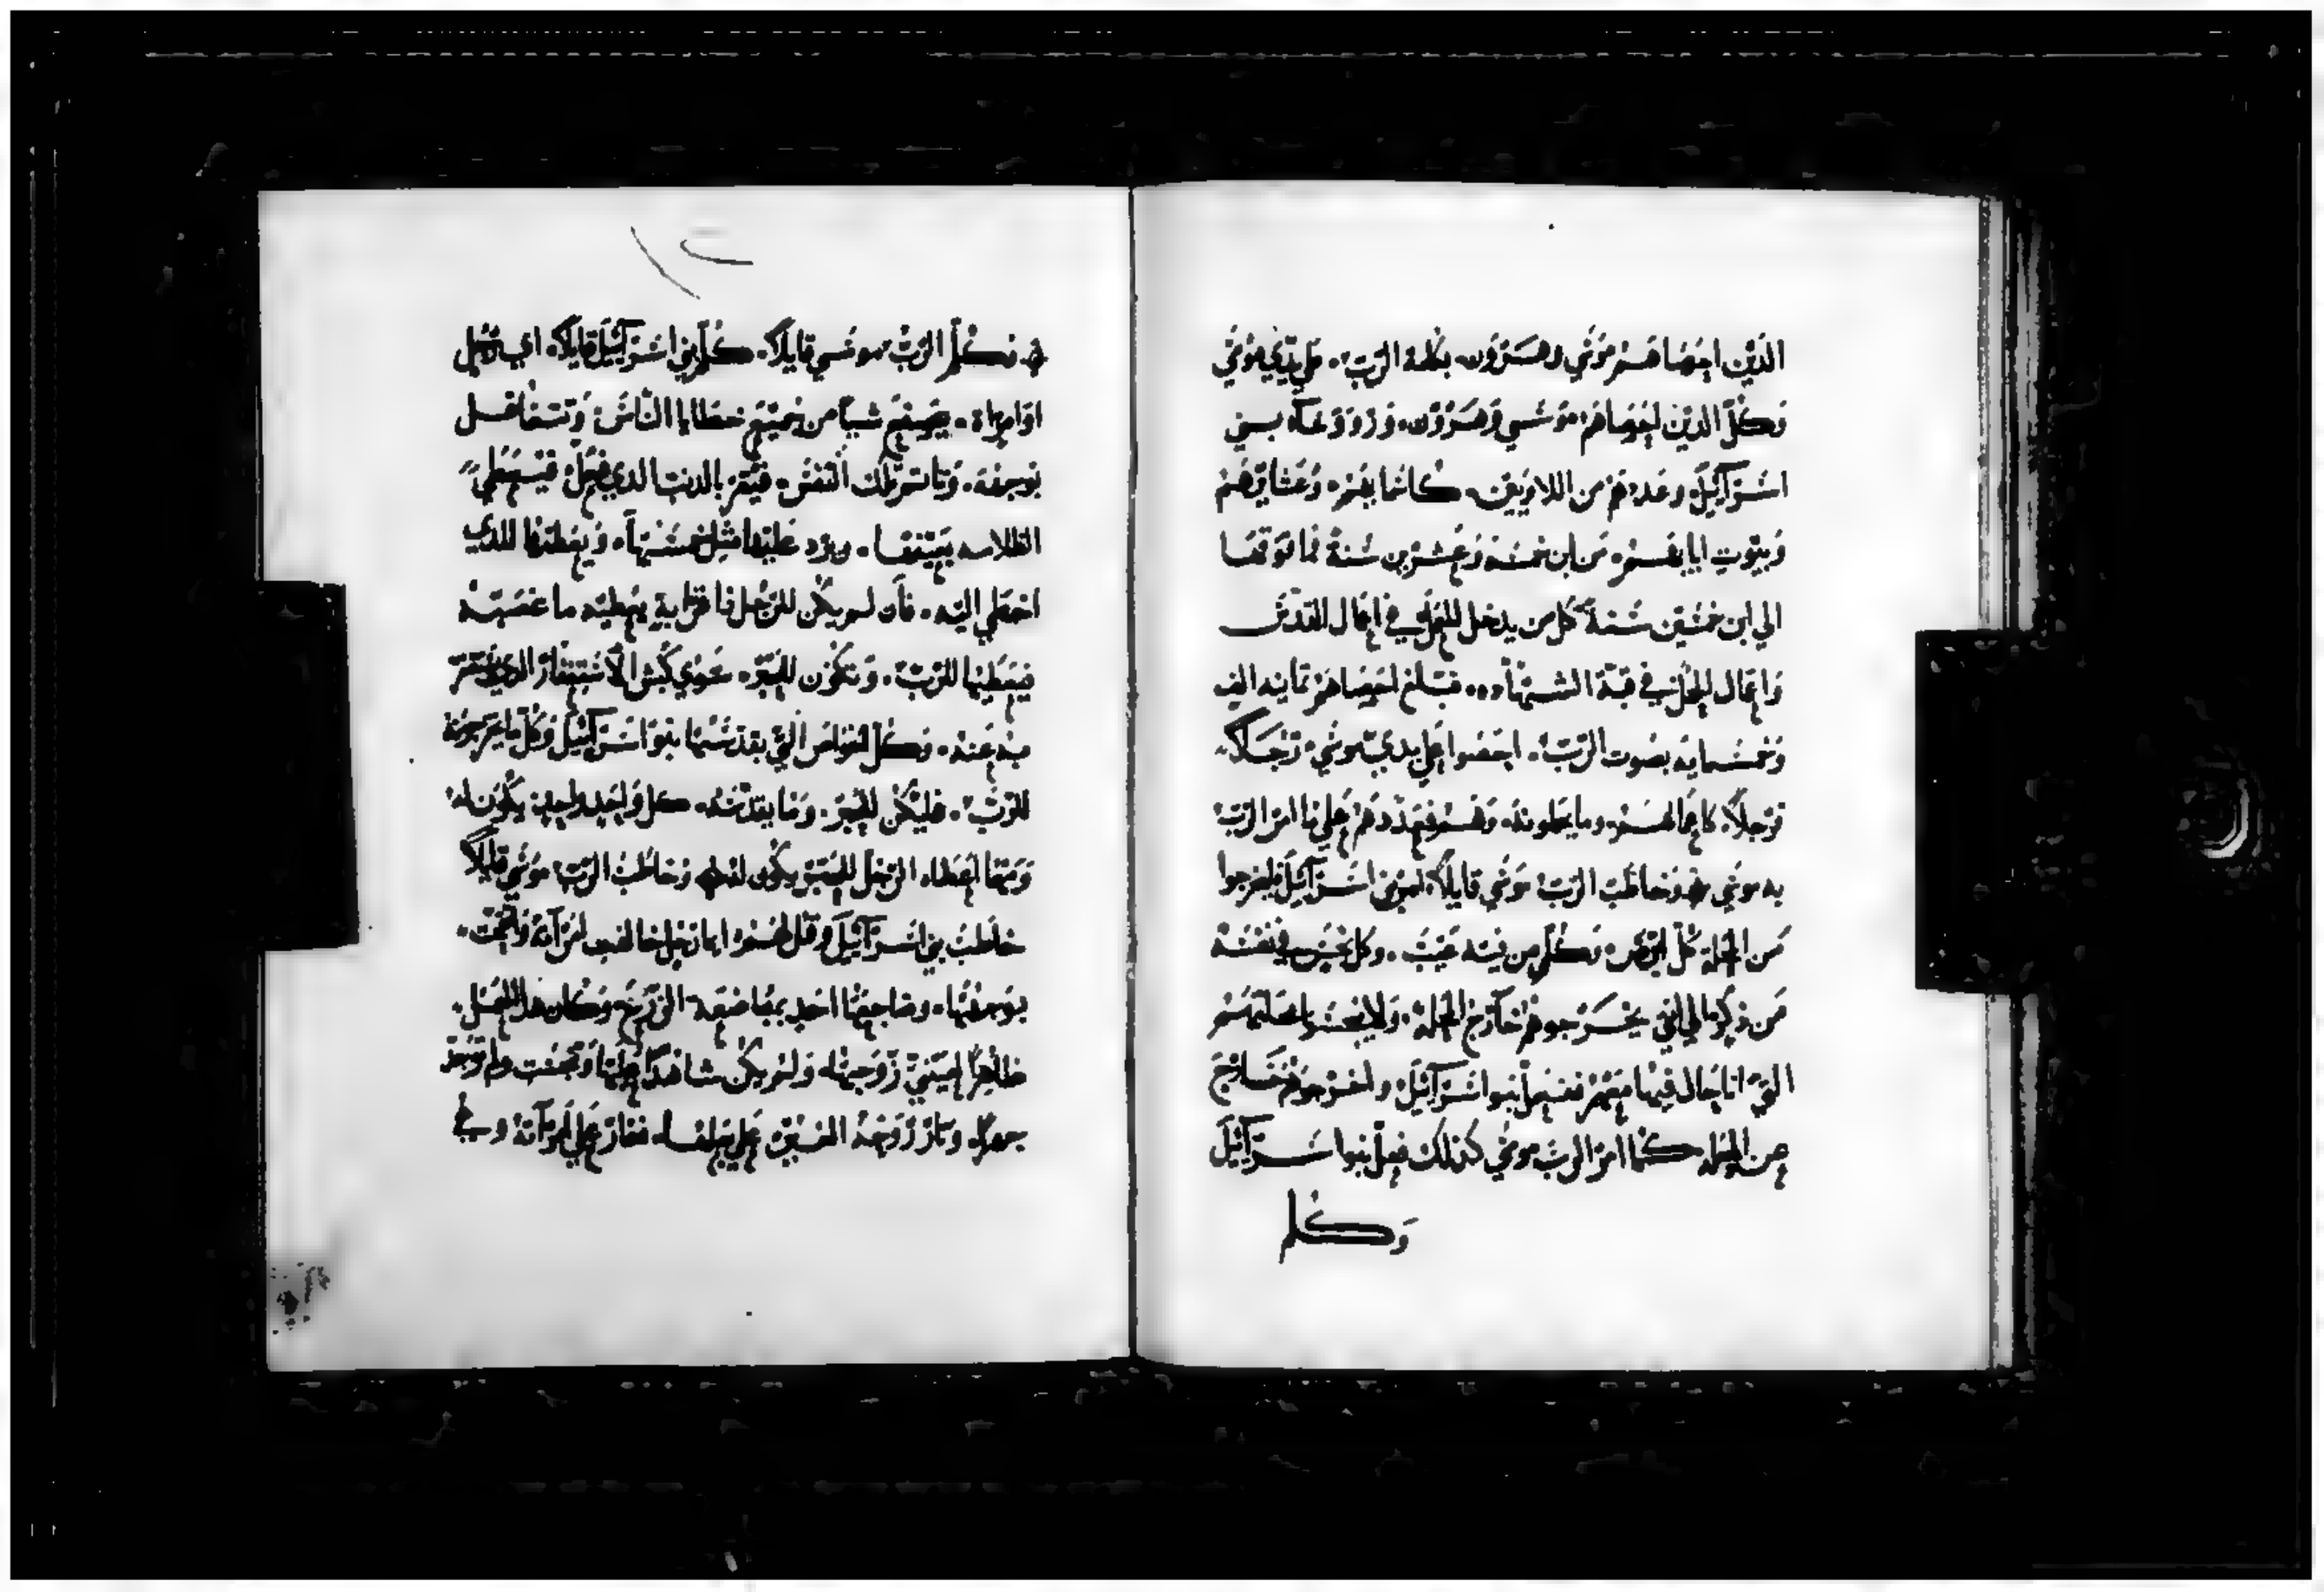 الذين احصاهم موسي وهرون بكلمة الرب. علي يدي موسي
وكل الذين احصاهم موسي وهرون. ورووسآء بني
اسرآئيل وعددهم من اللاويين. كانسابهم وعشايرهم
وبيوت ابايهم من ابن خمسة وعشرين سنة فما فوقها
الي ابن خمسين سنة كل من يدخل للعمل في اعمال القدس
واعمال الحمل في قبة الشهادة. فبلغ احصاهم تمانية الف
وخمسماية بصوت الرب. احصوا علي يدي موسي رجلاً
فرجلاً. كاعمالهم وما يحملونه. وهم فعددهم علي ما امر الرب
به موسي وخاطب الرب موسي قايلاً امر بني اسرآئيل فليخرجوا
من المحلة كل ابرص وكل من فيه عيب. وكل نجس في نفسه
من ذكر الي انثي يخرجوهم خآرج المحلة. ولا ينجسوا محلتهم
التي انا حال فيها معهم ففعل بنوا اسرآئيل واخرجوهم خارج
عن المحلة كما امر الرب موسي كذلك فعل بنوا اسرآئيل
وكلم
وكلم الرب موسي قايلاً. كلم بني اسرآئيل قايلاً. اي رجل
او امراة. يصنع شياً من جميع خطايا الناس وتتغافل
بوجهة. وتاتم تلك النفس. فيقر بالدنب الدي فعل فيعطي
الظلامه بعينها. ويزد عليها مثل خمسها. ويعطيها للدي
اخطي اليه. فان لم يكن للرجل ذا قرابة يعطيه ما غصبه
فيعطيها للرب. وتكون للحبر. سوي كبش الاستغفار الدي يستغفر
به عنه. وكل الخواص التي يقدسها بنوا اسرآئيل وكل ما يخرجونه
للرب. فليكن للحبر. وما يقدسه. كل واحد واحد يكون له
ومهما اعطاه الرجل للحبر يكون له وخاطب الرب موسي قايلاً
خاطب بني اسرآئيل وقل لهم ايما رجل خالفت امرآته وفجرت.
بوجهها. وضاجعها احد بمضاجعة الزرع وكان هدا الفعل.
ظاهراً لعيني زوجها. ولم يكن شاهداً عليها وتجست ولم توجد
حبلا. وثار زوجها